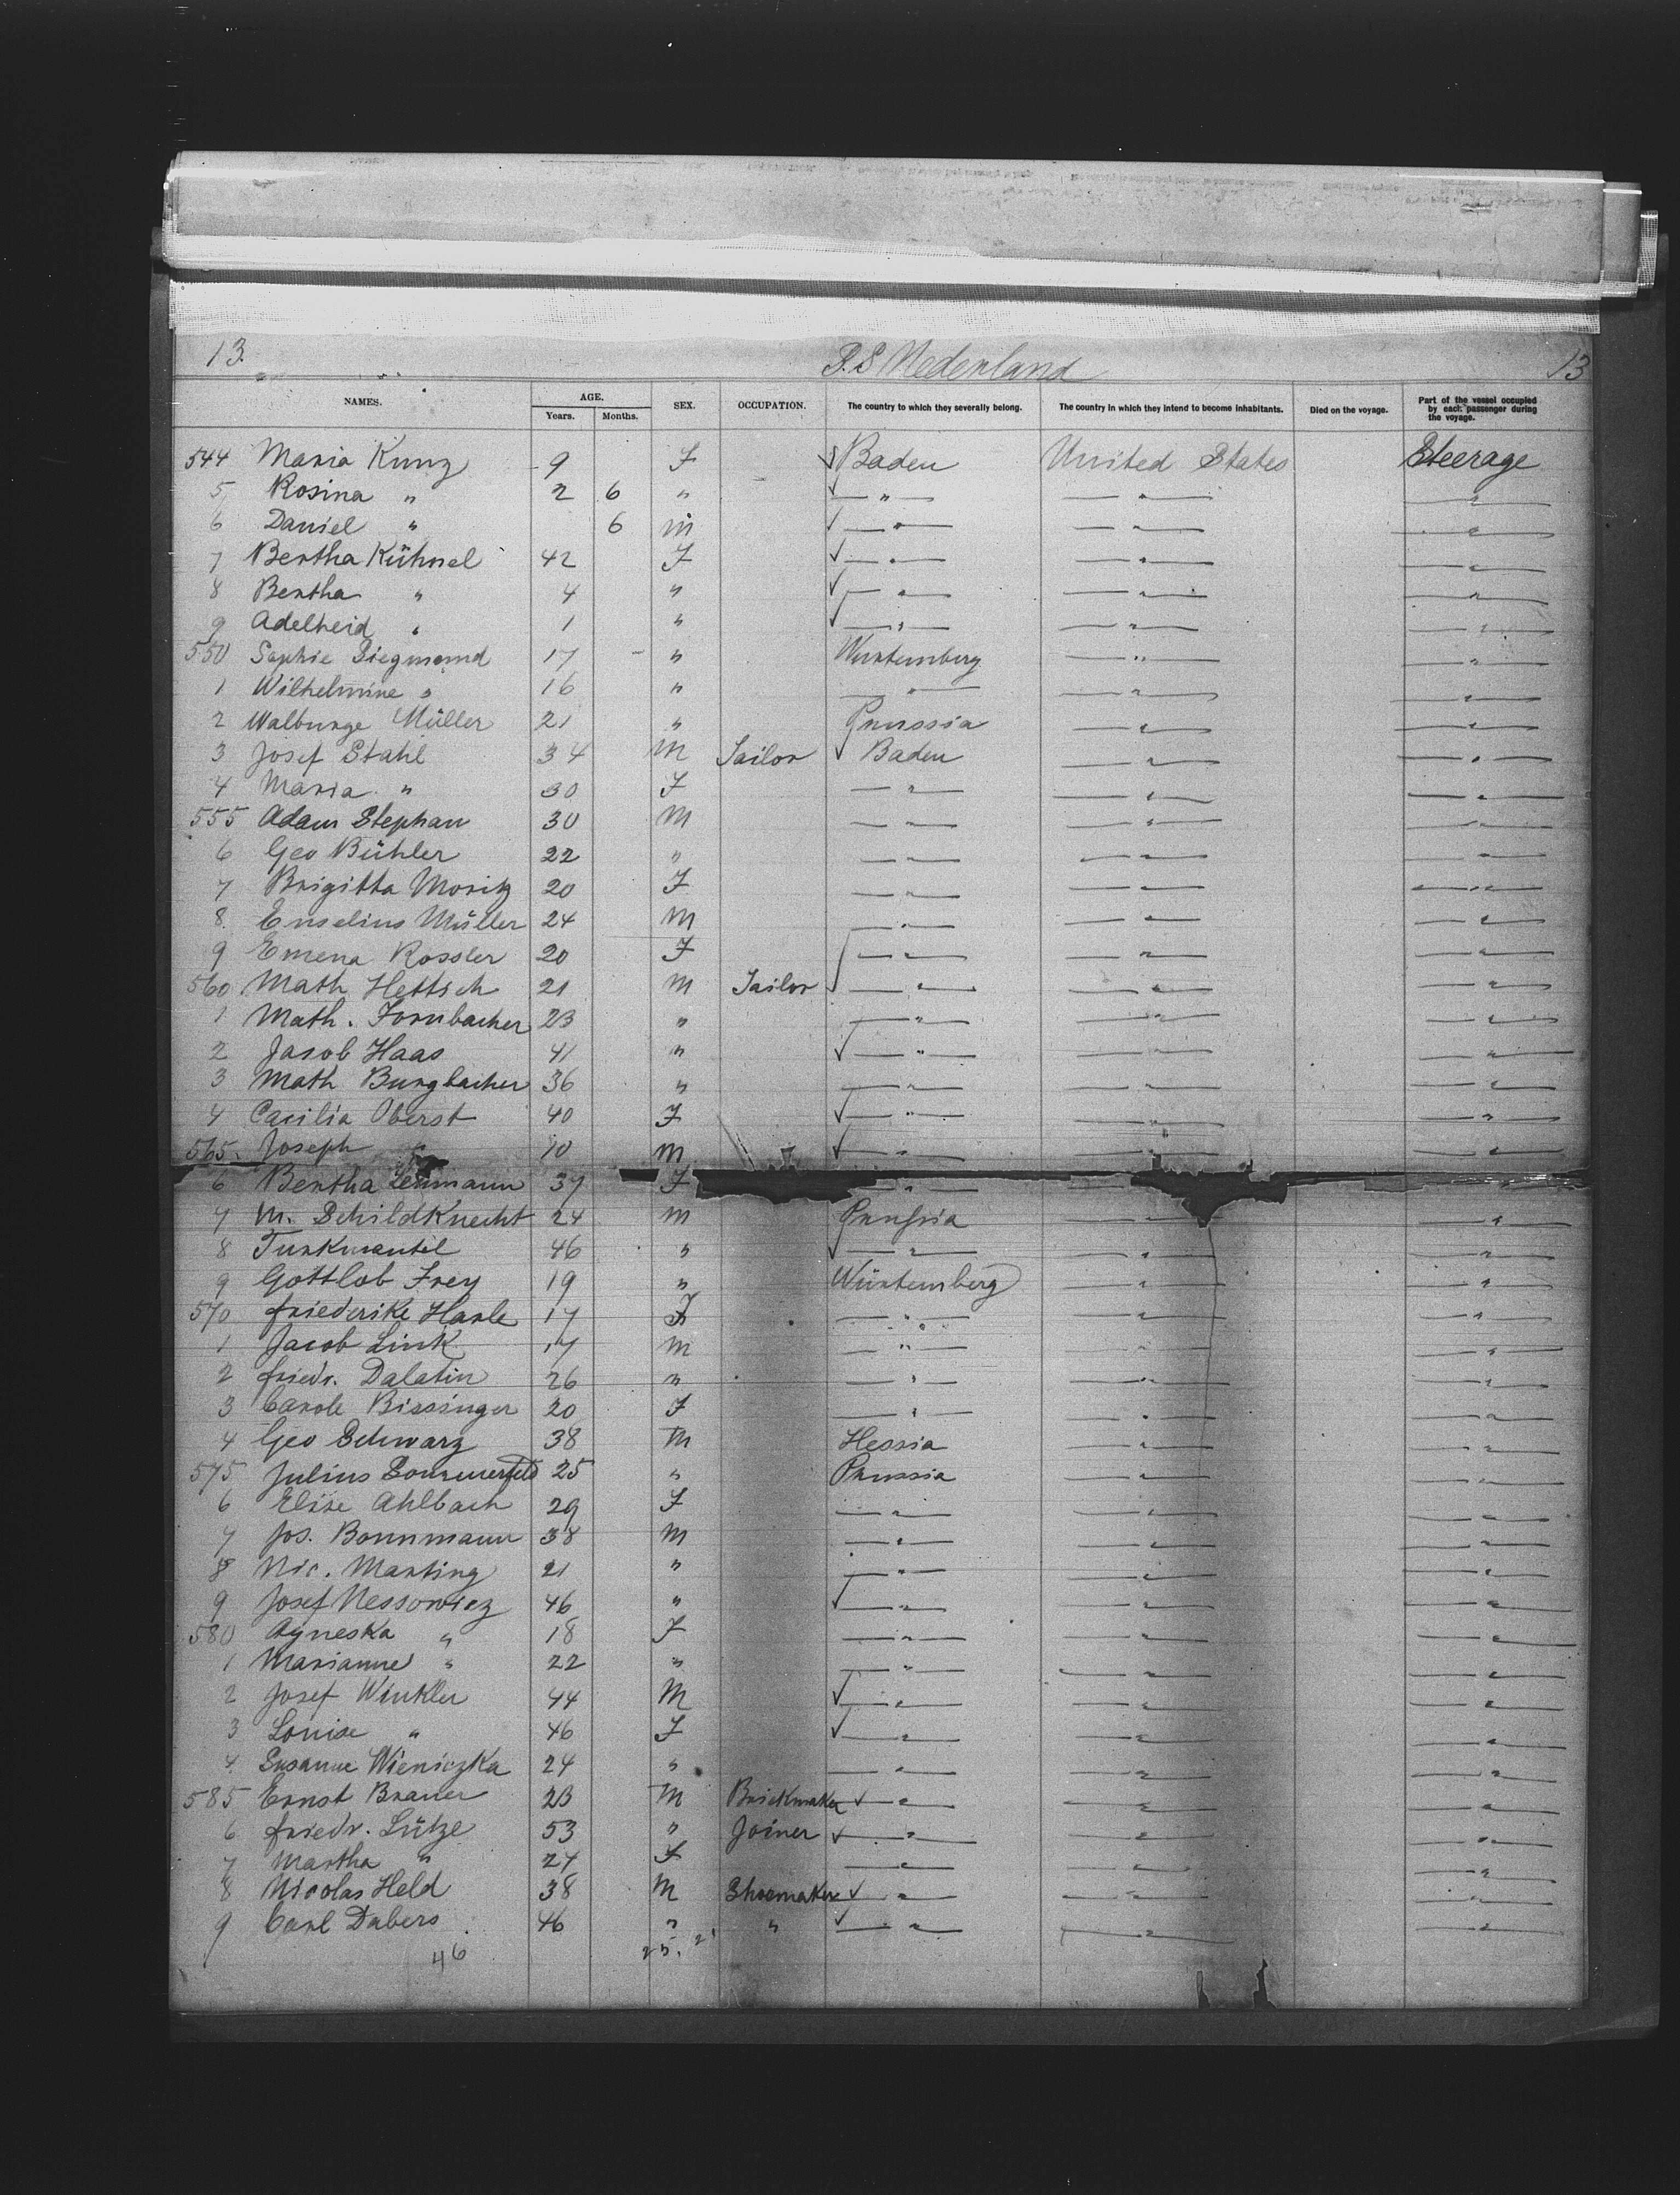 13. S.S Nederland 13
NAMES. AGE. Years. Months. SEX. OCCUPATION. The country to which they severally belong. The country in which they intend to become inhabitants. Died on the voyage. Part of the vessel occupied by each passenger during the voyage.
544 Maria Kunz 9 F Baden United States Steerage
5 Rosina " 2 6 " — " — — " — — " —
6 Daniel " 6 m — " — — " — — " —
7 Bertha Kühnel 42 F — " — — " — — " —
8 Bertha " 4 " — " — — " — — " —
9 Adelheid " 1 " — " — — " — — " —
550 Sophie Siegmund 17 " Wurtemberg — " — — " —
1 Wilhelmine " 16 " — " — — " — — " —
2 Walburge Müller 21 " Prussia — " — — " —
3 Josef Stahl 34 M Tailor Baden — " — — " —
4 Maria " 30 F — " — — " — — " —
555 Adam Stephan 30 M — " — — " — — " —
6 Geo Bühler 22 " — " — — " — — " —
7 Brigitta Moritz 20 F — " — — " — — " —
8 Müller 24 M — " — — " — — " —
9 Emena Rossler 20 F — " — — " — — " —
560 Math Hettich 21 M Tailor — " — — " — — " —
1 Math. Fornbacher 23 " — " — — " — — " —
2 Jacob Haas 41 " — " — — " — — " —
3 Math Burgbacher 36 " — " — — " — — " —
4 Cacilia Oberst 40 F — " — — " — — " —
565. Joseph " 10 M — " — — " — — " —
6 Bertha Lehmann 37 F — " —
7 M. Schildknecht 24 M Prussia — " — — " —
8 Turkmantel 46 " — " — — " — — " —
9 Gottlob Frey 19 " Würtemberg — " — — " —
570 Friederike Harle 17 F — " — — " — — " —
1 Jacob Link 17 M — " — — " — — " —
2 Friedr. Dalatin 26 " — " — — " — — " —
3 Carole Bissinger 20 F — " — — " — — " —
4 Geo Schwarz 38 M Hessia — " — — " —
575 Julius Sommerfeld 25 " Prussia — " — — " —
6 Elise Ahlbach 29 F — " — — " — — " —
7 Jos. Bonnmann 38 M — " — — " — — " —
8 Nic. Marting 21 " — " — — " — — " —
9 Josef Nessowicz 46 " — " — — " — — " —
580 Agneska " 18 F — " — — " — — " —
1 Marianne " 22 " — " — — " — — " —
2 Josef Winkler 44 M — " — — " — — " —
3 Louise " 46 F — " — — " — — " —
4 Susanne Wieniczka 24 " — " — — " — — " —
585 Ernst Brauer 23 M Brickmaker — " — — " — — " —
6 Friedr. Lütze 53 " Joiner — " — — " — — " —
7 Martha " 27 F — " — — " — — " —
8 Nicolas Held 38 M Shoemaker — " — — " — — " —
9 Carl Dabers 46 " " — " — — " — — " —
46 25. 21